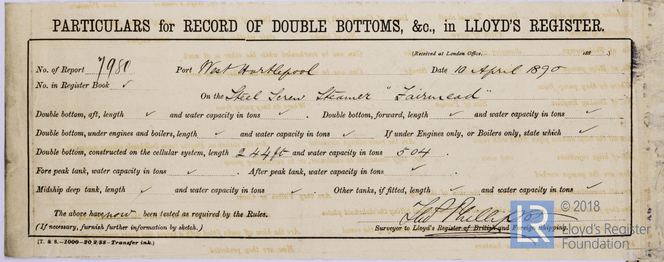 PARTICULARS for RECORD OF DOUBLE BOTTOMS, &c., in LLOYD'S REGISTER.
(Received at London Office, 188 )
No. of Report 7980 Port West Hartlepool Date 10 April 1890
No. in Register Book ✓
On the Steel Screw Steamer "Fairmead"
Double bottom, aft, length ✓ and water capacity in tons ✓ . Double bottom, forward, length ✓ and water capacity in tons ✓
Double bottom, under engines and boilers, length ✓ and water capacity in tons ✓ If under Engines only, or Boilers only, state which ✓
Double bottom, constructed on the cellular system, length 244 ft and water capacity in tons 504.
Fore peak tank, water capacity in tons ✓ . After peak tank, water capacity in tons ✓ .
Midship deep tank, length ✓ and water capacity in tons ✓ Other tanks, if fitted, length ✓ and water capacity in tons ✓
The above have now been tested as required by the Rules.
(If necessary, furnish further information by sketch.)
Surveyor to Lloyd's Register of British and Foreign Shipping.
[T. & S.—1000—20 2/88—Transfer ink.]
LR © 2018
Lloyd's Register
Foundation